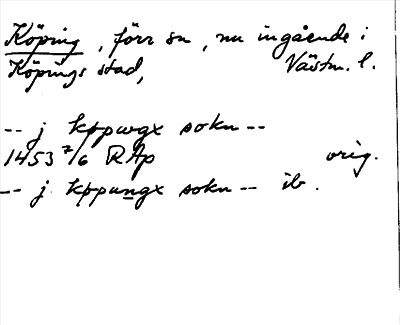 Köping, förr sn, nu ingående i
Köpings stad, Västm. l.
-- j kppwgx sokn --
1453 7/6 RAp orig.
-- j kppungx sokn -- ib.